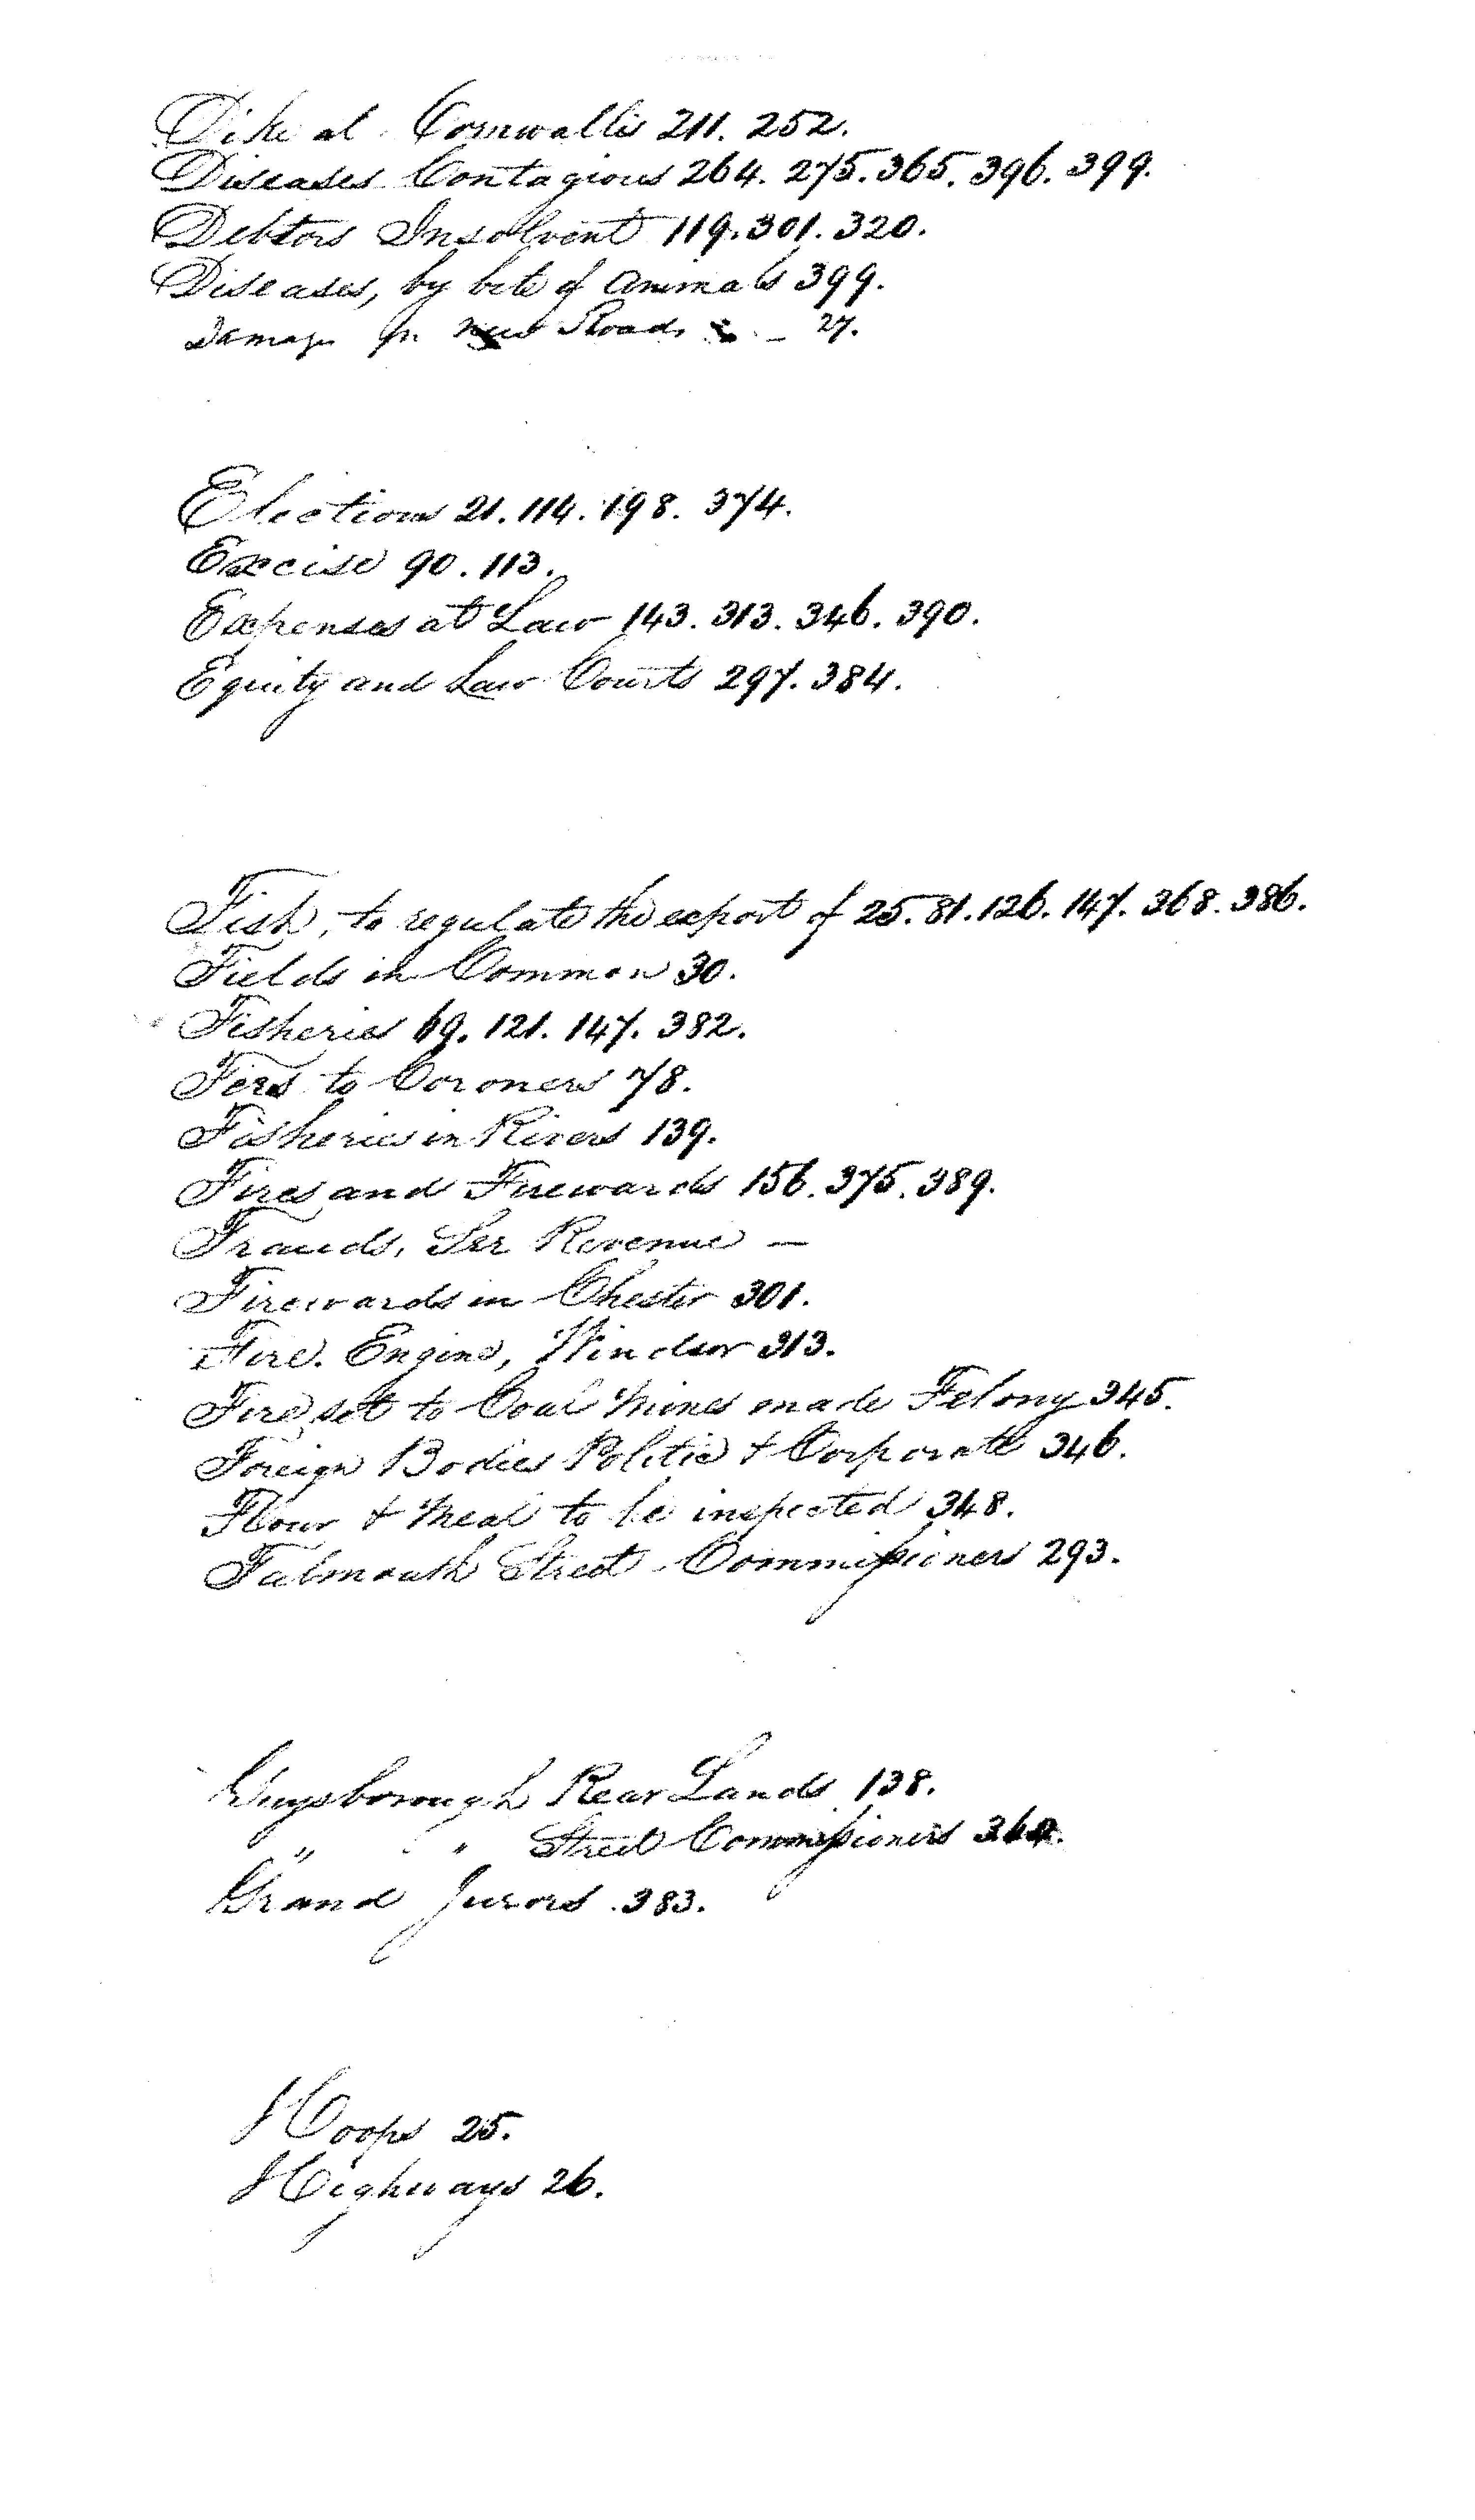 Dike at Cornwallis 211. 252.
Diseases Contagious 264. 275. 365. 396. 399.
Debtors Insolvent 119. 301. 320.
Diseases, by bite of animals 399.
Damage for new Roads - 27.
Elections 21. 114. 198. 374.
Excise 90. 113.
Expenses at Law 143. 313. 346. 390.
Equity and Law Courts 297. 384.
Fish, to regulate the export of 25. 81. 126. 147. 368. 386.
Fields in Common 30.
Fisheries 69. 121. 147. 382.
Fees to Coroners 78.
Fisheries in Rivers 139.
Fires and Firewards 156. 375. 389.
Frauds, See Revenue —
Firewards in Chester 301.
Fire. Engine, Windsor 313.
Fire, set to Coal Mines made Felony 345.
Foreign Bodies Politic & Corporate 346.
Flour & Meal to be inspected 348.
Falmouth Street Commissioners 293.
Guysborough Rear Lands 138.
" " Street Commissioners
Grand Jurors. 383.
Hoops 25.
Highways 26.